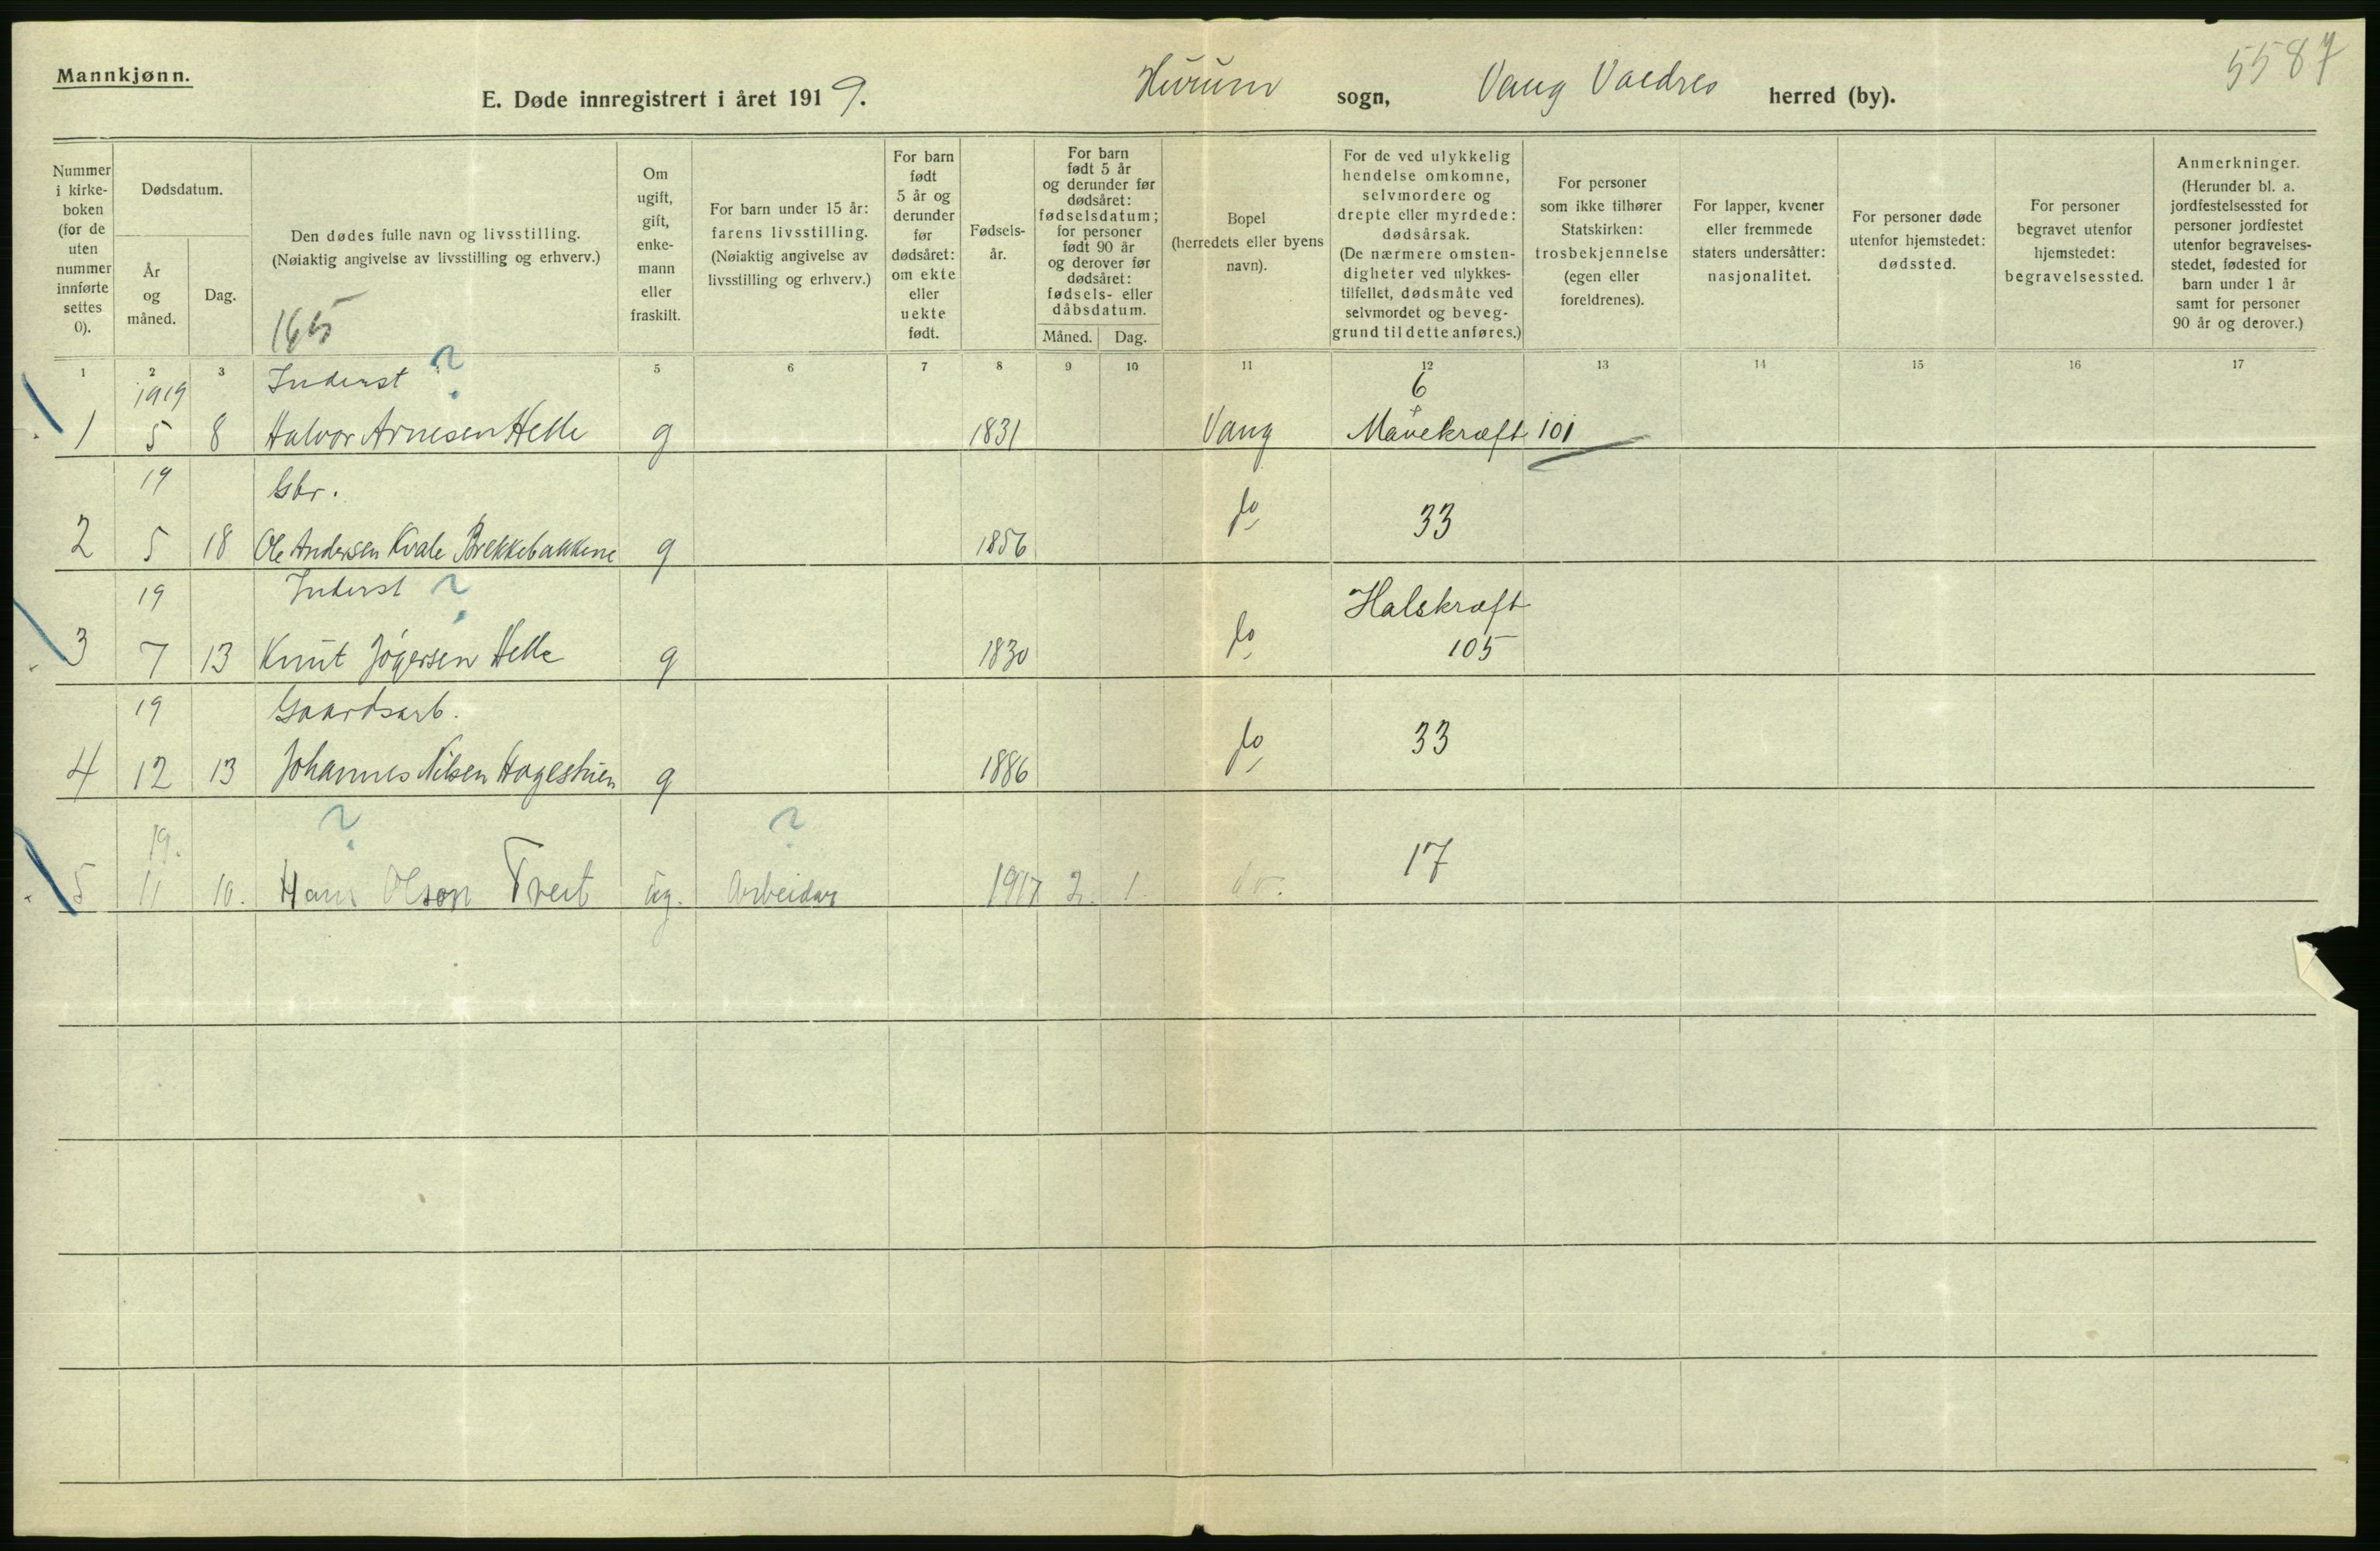 Mannkjønn.
5587
E. Døde innregistrert i året 1919. Hurum sogn, Vang Valdres herred (by).
Nummer i kirke-boken (for de uten nummer innførte settes 0).
Dødsdatum.
År og måned.
Dag.
Den dødes fulle navn og livsstilling.
(Nøiaktig angivelse av livsstilling og erhverv.)
165
Om ugift, gift, enke-mann eller fraskilt.
For barn under 15 år: farens livsstilling. (Nøiaktig angivelse av livsstilling og erhverv.)
For barn født 5 år og derunder før dødsåret: om ekte eller uekte født.
Fødsels-år.
For barn født 5 år og derunder før dødsåret: fødselsdatum; for personer født 90 år og derover før dødsåret: fødsels- eller dåbsdatum.
Måned. Dag.
Bopel (herredets eller byens navn).
For de ved ulykkelig hendelse omkomne, selvmordere og drepte eller myrdede: dødsårsak. (De nærmere omsten-digheter ved ulykkes-tilfellet, dødsmåte ved selvmordet og beveg-grund til dette anføres.)
For personer som ikke tilhører Statskirken: trosbekjennelse (egen eller foreldrenes).
For lapper, kvener eller fremmede staters undersåtter: nasjonalitet.
For personer døde utenfor hjemstedet: dødssted.
For personer begravet utenfor hjemstedet: begravelsessted.
Anmerkninger. (Herunder bl. a. jordfestelsessted for personer jordfestet utenfor begravelses-stedet, fødested for barn under 1 år samt for personer 90 år og derover.)
1 2 3 5 6 7 8 9 10 11 12 13 14 15 16 17
1919 Inderst ? 6
1 5 8 Halvor Arnesen Helle g 1831 Vang Mavekræft 101
19 Gbr.
2 5 18 Ole Andersen Kvale Brekkebakkene g 1856 do 33
19 Inderst ? Halskræft
3 7 13 Knut Jøgersen Helle g 1830 do 105
19 Gaardsarb.
4 12 13 Johannes Nilsen Hagestuen g 1886 do 33
19. ? ?
5 11 10. Hans Olson Tveit ug. Arbeidar 1917 2. 1. do. 17